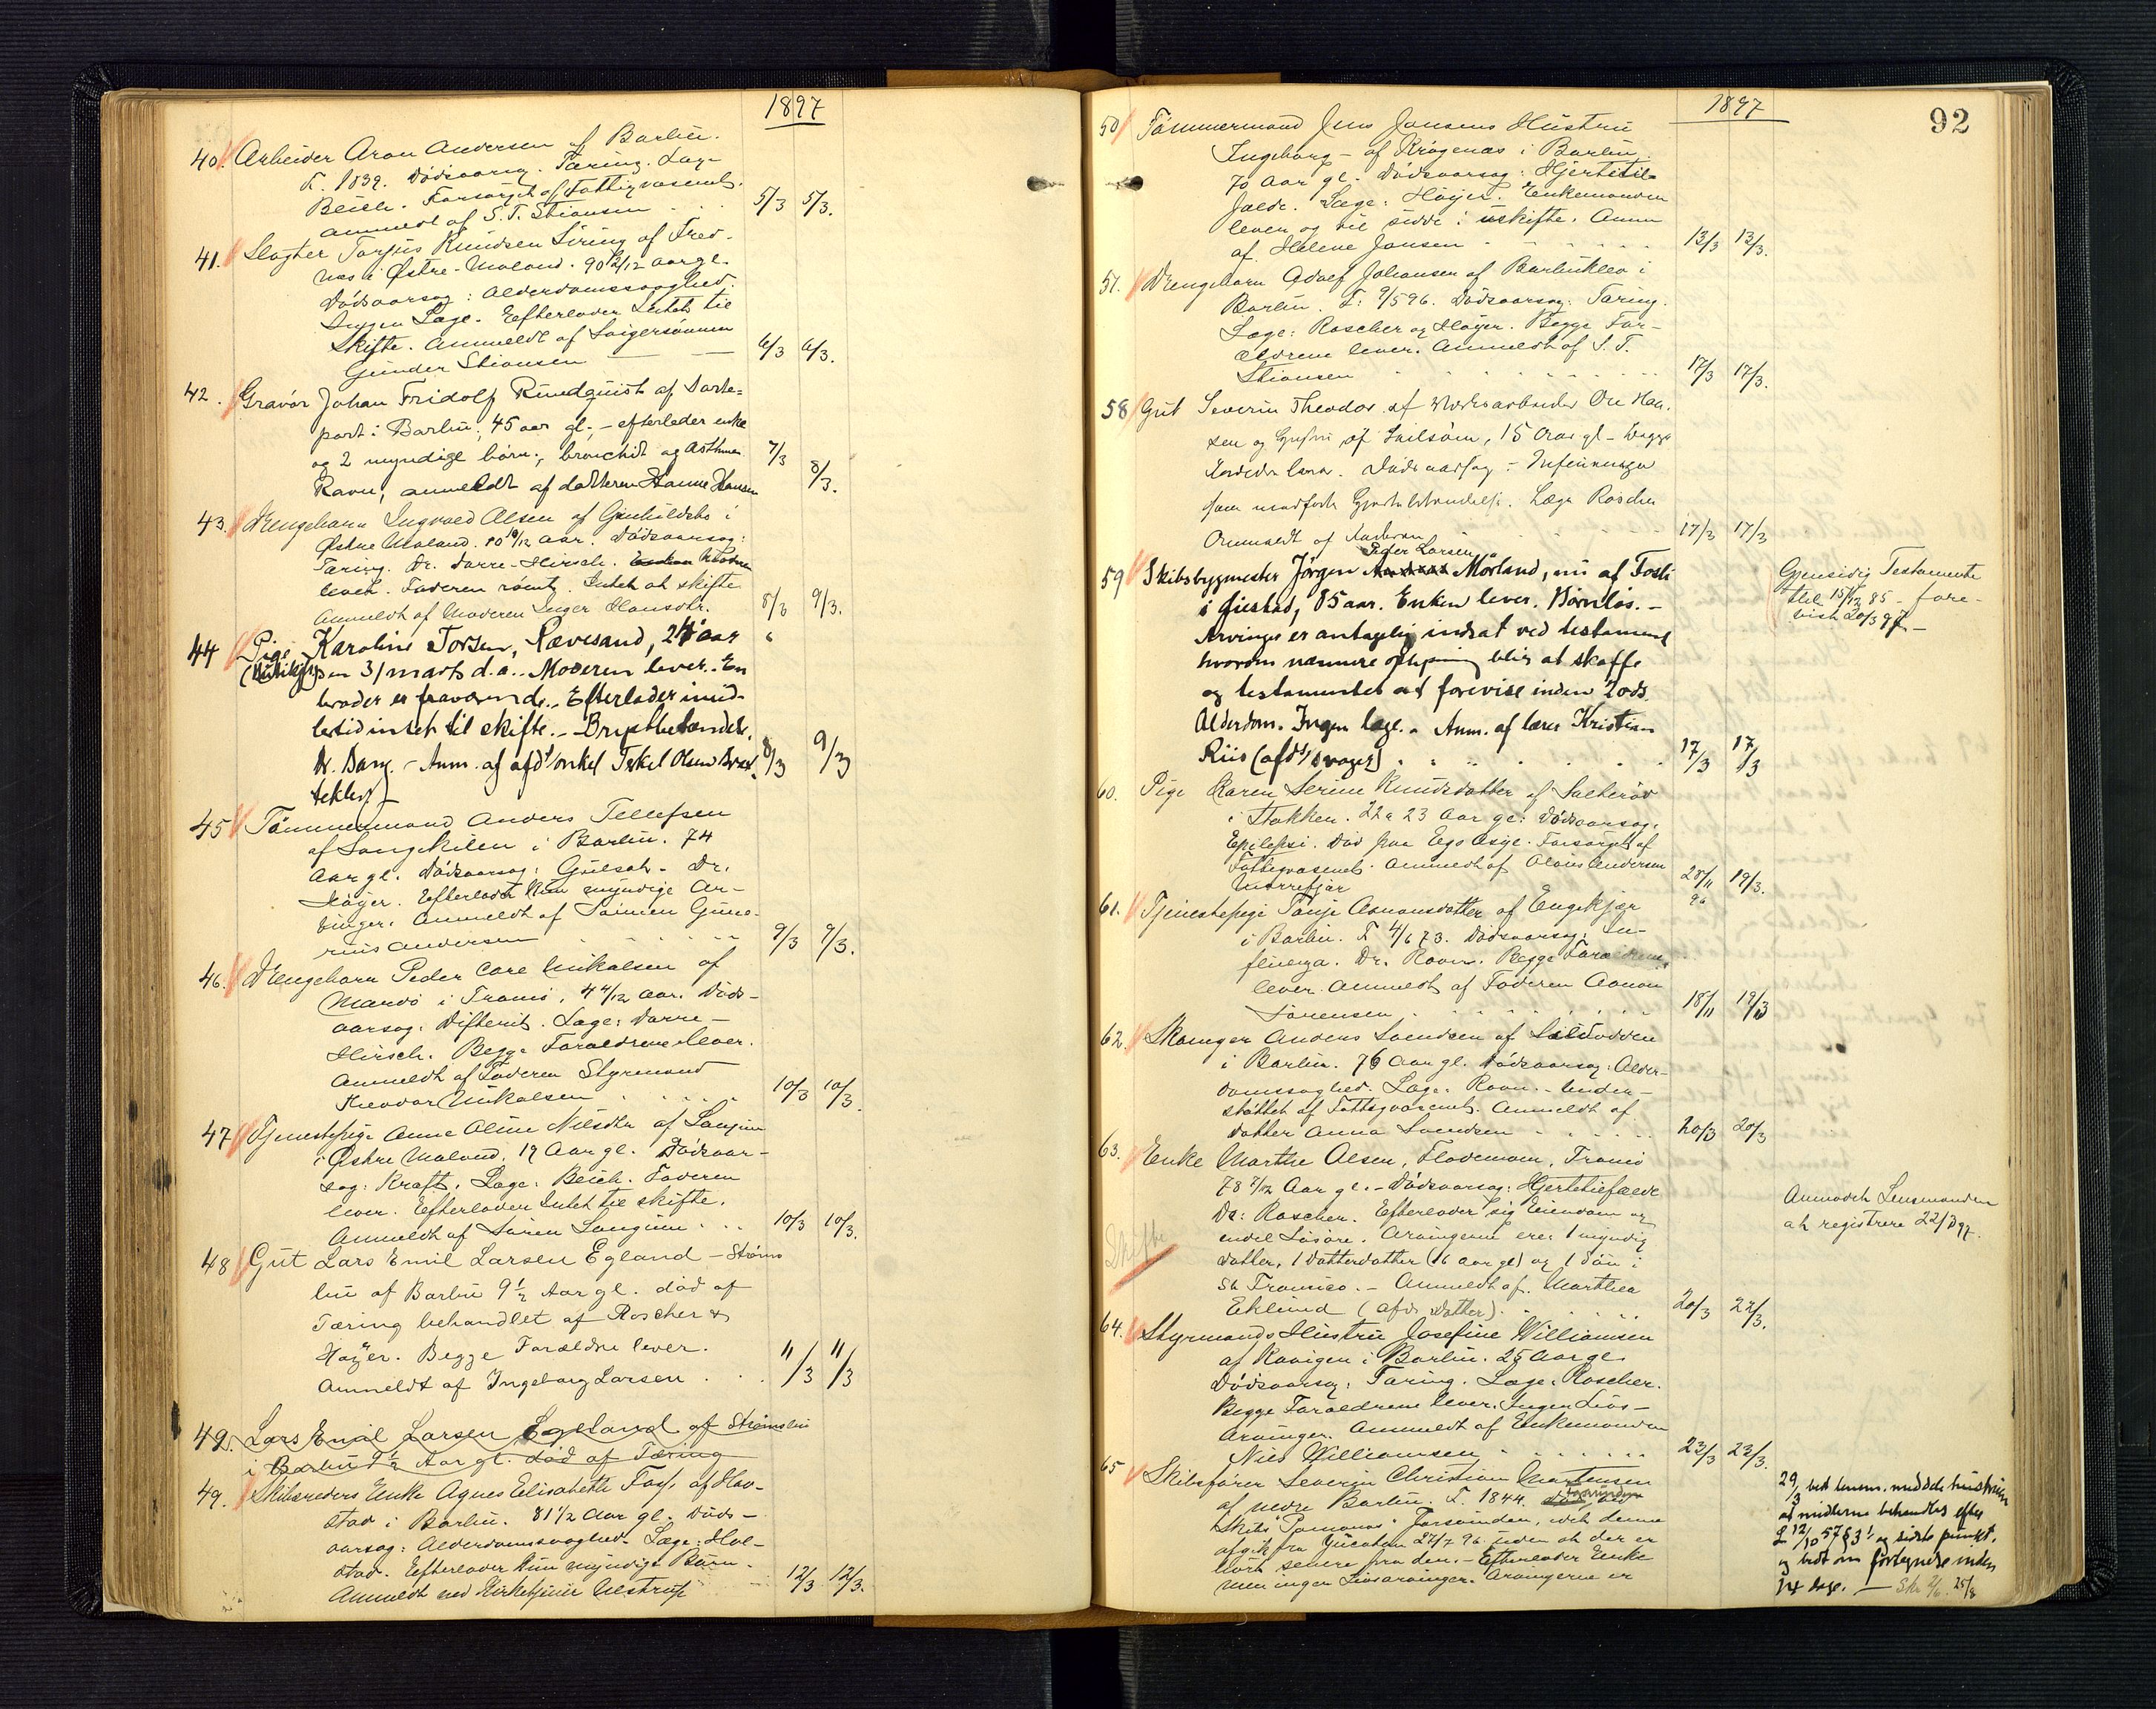 1897
40. Arbeider Aron Andersen af Barbu.
F. 1839. Dödsaarsag. Tæring. Læge
Beich. Forsörget af Fattigvæsenet.
Anmeldt af S. T. Stiansen 5/3 5/3.
41. Slagter Torjus Knudsen Söring af Fred-
næs i Østre-Moland. 90 2/12 Aar gl.
Dödsaarsag: Alderdomssvaghed.
Ingen Læge. Efterlader Intet til
Skifte. Anmeldt af Svigersönnen
Gunder Stiansen 6/3 6/3.
42. Gravör Johan Fridolf Rundquist af Parke-
part i Barbu; 45 aar gl., - efterlader enke
og 2 myndige börn; bronchit og Asthma
Ravn, anmeldt af datteren Hanne Hansen 7/3 8/3.
43. Drengebarn Ingvald Olsen af Gunhildsbo i
Østre Moland. 10 10/12 Aar. Dödsaarsag:
Tæring. Dr. Darre-Hirsch. Moderen
lever. Faderen römt. Intet at skifte
Anmeldt af Moderen Inger Hansdtr. 8/3 9/3.
44 Pige Karoline Torsen, Rævesand, 24 aar
Den 3/ marts d.a. Moderen lever. En
broder er fraværende. Efterlader imid-
lertid intet til skifte. - Brystbetændelse.
Dr. Bang. - Anm. af afd's onkel Terkel Olsen Bræk- 8/3 9/3
klep
45 Tömmermand Anders Tellefsen
af Langekilen i Barbu. 74
Aar gl. Dödsaarsag: Gulsot. Dr.
Höyer. Efterladt kun myndige Ar-
vinger. Anmeldt af Sönnen Gune-
rius Andersen 9/3 9/3.
46. Drengebarn Peder Care Mikalsen af
Marvö i Tromö. 4 4/12 Aar. Döds-
aarsag: Difterit. Læge: Darre-
Hirsch. Begge Forældrene lever.
Anmeldt af Faderen Styrmand
Theodor Mikalsen 10/3 10/3.
47 Tjenestepige Anne Oline Nilsdtr af Langum
i Østre Moland. 19 Aar gl. Dödsaar-
sag: Kræft. Læge: Beich. Faderen
lever. Efterlader Intet til skifte.
Anmeldt af Sören Langum 10/3 10/3.
48 Gut Lars Emil Larsen Egeland - Ströms
bu af Barbu 9 1/2 Aar gl. död af
Tæring behandlet af Roscher &
Höyer. Begge Forældre lever.
Anmeldt af Ingeborg Larsen 11/3 11/3
49. Lars Emil Larsen Egeland af Strömsbu
i Barbu 9 1/2 Aar gl. död af Tæring
49. Skibsreders Enke Agnes Elisabeth Foss, af Hav-
stad i Barbu. 81 1/2 Aar gl. Döds-
aarsag: Alderdomssvaghed. Læge: Hol-
stad. Efterlader kun myndige Börn.
Anmeldt ved Kirketjener Ulstrup 12/3 12/3.
1897
92
50 Tömmermand Jens Jansens Hustru
Ingeborg - af Krögenæs i Barbu
70 Aar gl. Dödsaarsag: Hjertetil-
fælde. Læge: Höyer. Enkemanden
lever og vil sidde i uskifte. Anm
af Helene Jansen 13/3 13/3.
51. Drengebarn Adolf Johansen af Barbuklev i
Barbu. F. 9/5 96. Dödsaarsag: Tæring.
Læge: Roscher og Höyer. Begge For-
ældrene lever. Anmeldt af S. T.
Stiansen 17/3 17/3.
58 Gut Severin Theodor af Verksarbeider Ole Han-
sen og af 15 Aar gl - begge
Forældre lever. Dödsaarsag: Influenza
som medförte Hjertebetændelse. Læge Roscher
Anmeldt af 17/3 17/3
59 Skibsbygmester Jörgen Peder Larsen Morland, nu af Fosti
i Öiestad, 85 aar. Enken lever. Barnlös. -
Arvinger er antagelig indsat ved testament
hvorom nærmere oplysning blir at skaffe
og testamentet at forevise inden 20ds.
Alderdom. Ingen læge. - Anm. af lærer Kristian
Riis (afd's svoger) 17/3 17/3
Gjensidig Testamente
dat. 15/12 85 - fore-
vist 20/3 97 -
60. Pige Karen Serine Knudsdatter af Salteröd
i Stokken. 22 a 23 Aar gl: Dödsaarsag:
Epilepsi. Död paa Egs Asyl. Forsörget af
Fattigvæsenet. Anmeldt af Olavus Andersen
Morrefjær 28/11 96 19/3.
61. Tjenestepige Tonje Aanonsdatter af Engekjær
i Barbu. F 4/6 73. Dödsaarsag: In-
fluenza. Dr. Ravn. Begge Forældrene
lever. Anmeldt af Faderen Aanon
Sörensen 18/11 19/3
62. Skomager Anders Svendsen af Sildodden
i Barbu. 76 Aar gl. Dödsaarsag: Alder-
domssvaghed. Læge: Ravn. - Under-
stöttet af Fattigvæsenet. Anmeldt af
Datter Anna Svendsen 20/3 20/3
63. Enke Marthe Olsen, Flademoen, Tromö
78 7/12 Aar gl. - Dödsaarsag: Hjertetilfælde
Dr: Roscher. Efterlader sig Eiendom og
endel Lösöre. Arvingerne erer 1 myndig
Datter, 1 Datterdatter (16 aar gl) og 1 Sön i
St Francisco. - Anmeldt af Marthea
Eklund (afd's Datter). 20/3 22/3.
Skifte
Anmodet Lensmanden
at registrere 22/3 97.
64. Styrmands Hustru Josefine Williamsen
af Kavigen i Barbu. 25 Aar gl.
Dödsaarsag: Tæring. Læge: Roscher.
Begge Forældrene lever. Ingen Livs-
Arvinger. Anmeldt af Enkemanden
Nils Williamsen 23/3 23/3.
65 Skibsförer Severin Christian Martensen
af nedre Barbu. F. 1844. Forsvunden
Skib "Pomona" Forsvunden, idet denne
afgik fra Yucatan 27/7 96 uden at der er
hört senere fra den. - Efterlader Enke
men ingen Livsarvinger. Arvingerne er
29/3 bedt lensm. meddele hustruen
at midlerne behandles efter
L 12/10 57 § 3 og sidste punkt.
og bedt om forkyndelse inden
14 dage. - Skr 2/6. 25/8